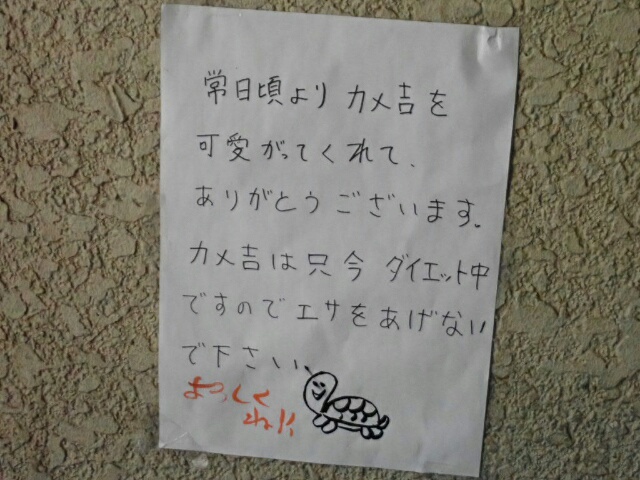 常日頃より カメ吉を
可愛がってくれて、
ありがとうございます。
カメ吉は只今 ダイエット中
ですのでエサをあげない
で下さい、
よろしく
ね!!